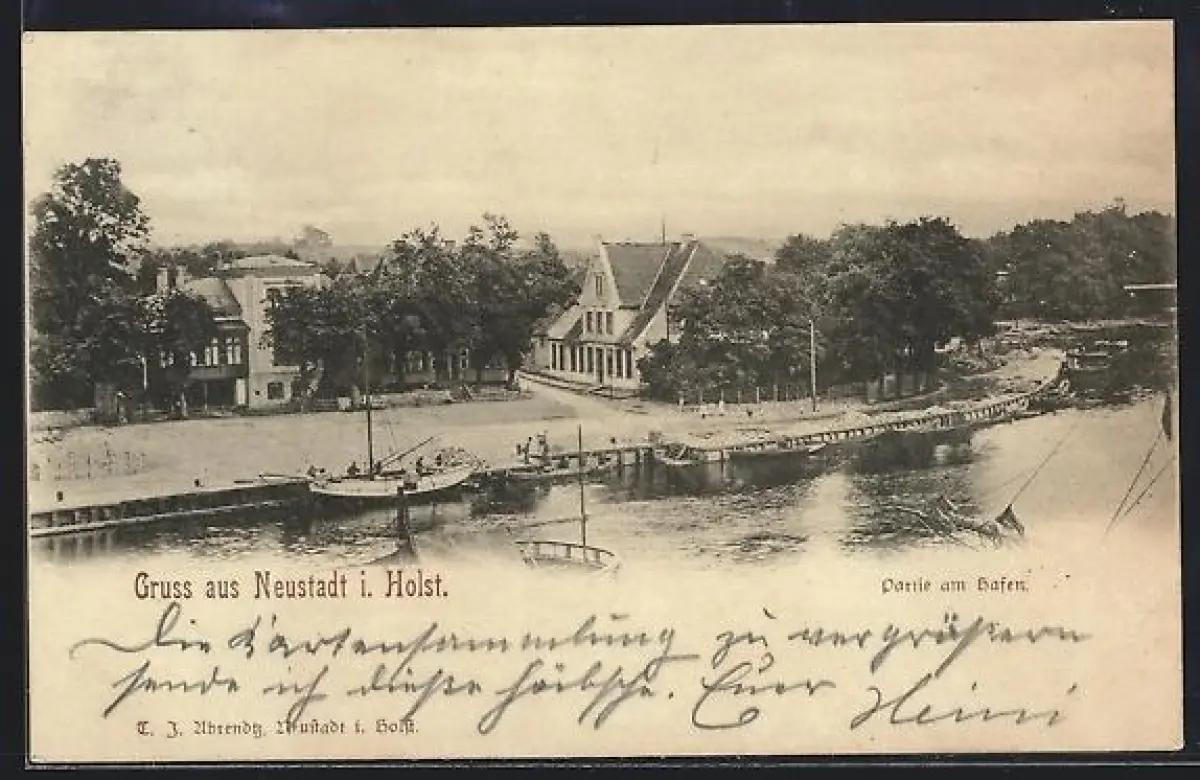 Gruss aus Neustadt i. Holst.
Partie am Hafen.
Die Kartensammlung zu vergrößern
sende ich diese hübsche. Euer Heini
C. J. Ahrendtz, Neustadt i. Holst.